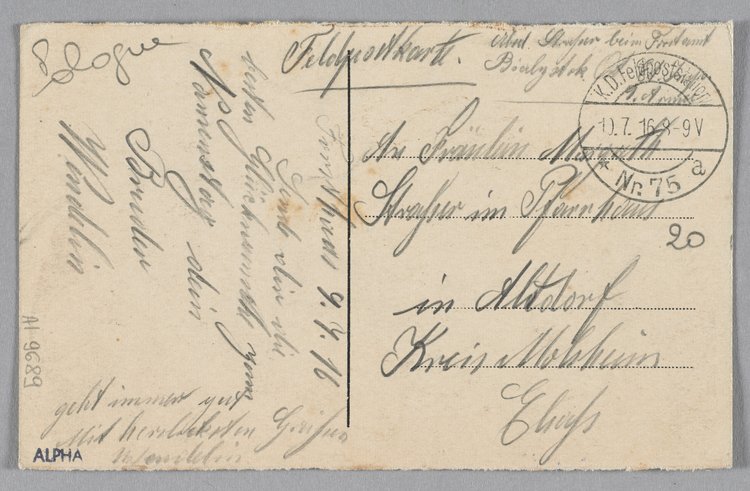 Cologne
Feldpostkarte.
Abs. Strasser beim Postamt
Bialystok
9. Armee
K.D. Feldpoststation
10.7.16 8-9V
* Nr. 75 a
An Fräulein
Strasser im Pfarrhaus
20
in Altdorf
Kreis Molsheim
Elsass
9.7.16
Sende dir die
besten Glückwünsche zum
Namenstag dein
Bruder
Wendelin
geht immer gut
Mit herzlichsten Grüßen
Wendelin
H 9689
ALPHA